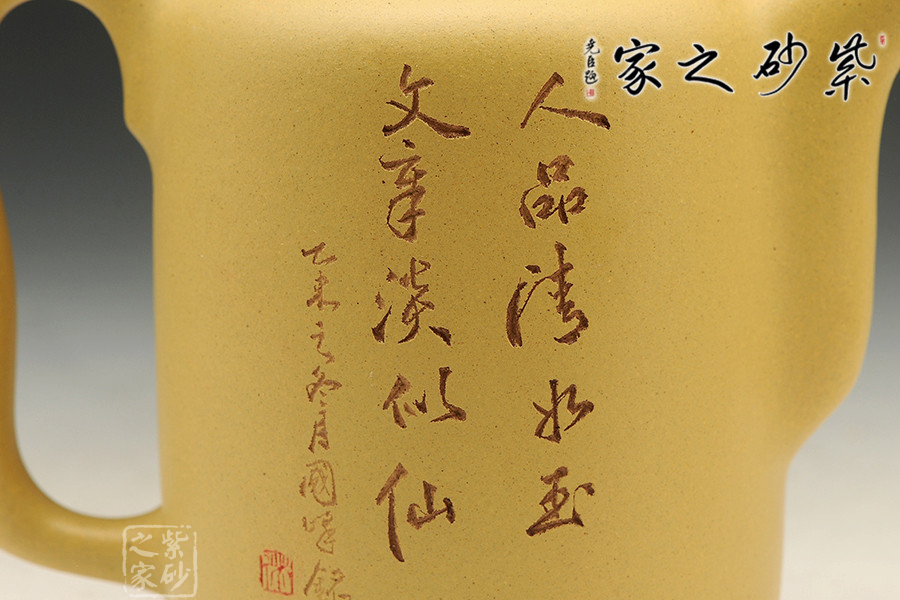 紫砂之家
人品清如玉
文章淡似仙
乙未之冬月國 銘
紫砂之家